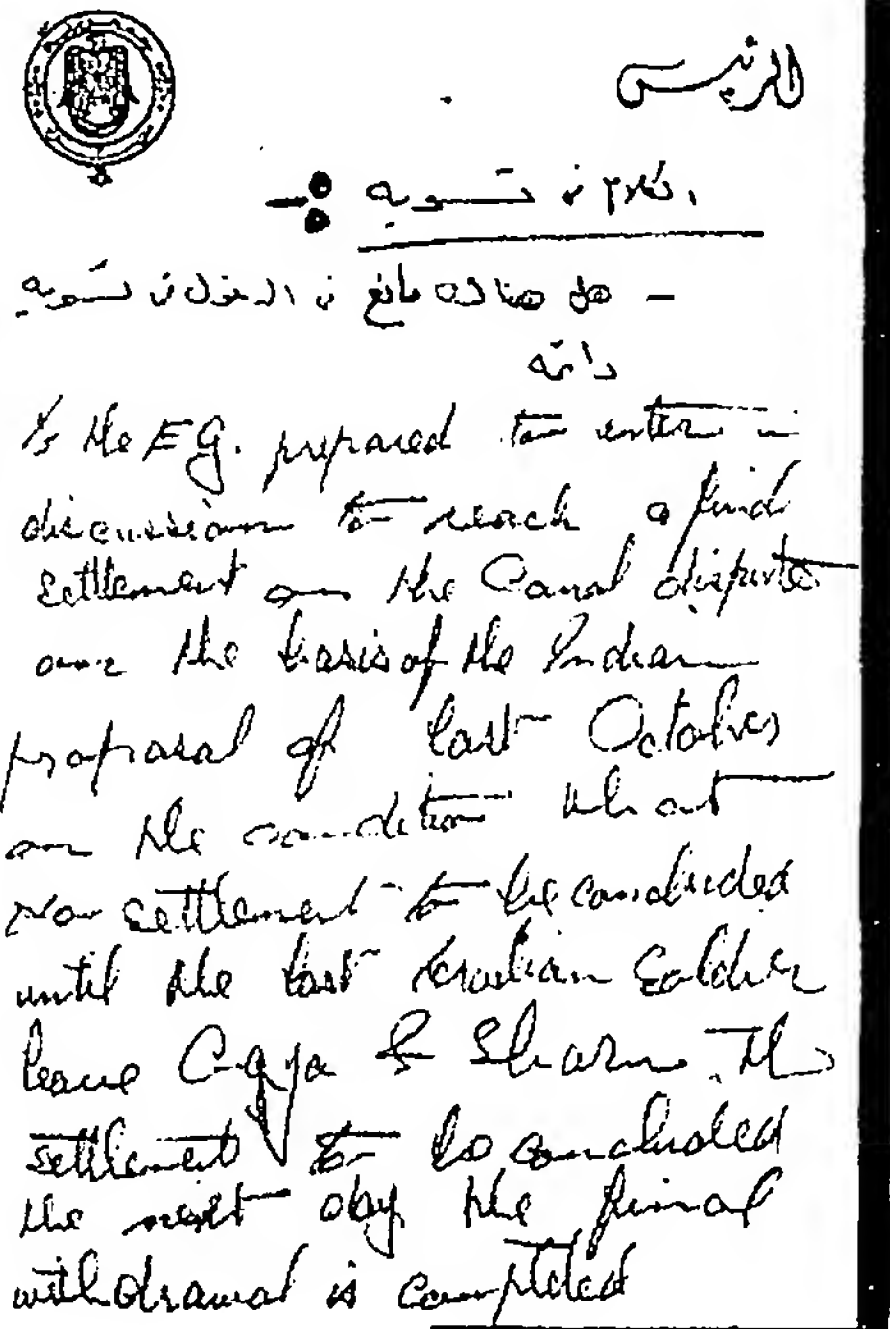 الرئيس
الكلام في تسوية :-
- هل هناك مانع في الدخول في تسوية
دائمة
Is the EG. prepared to enter in
discussions to reach a final
settlement on the Canal dispute
on the basis of the Indian
proposal of last October
on the condition that
no settlement to be concluded
until the last Israelian soldier
leave Gaza & Sharm. The
settlement to be concluded
the next day the final
withdrawal is completed